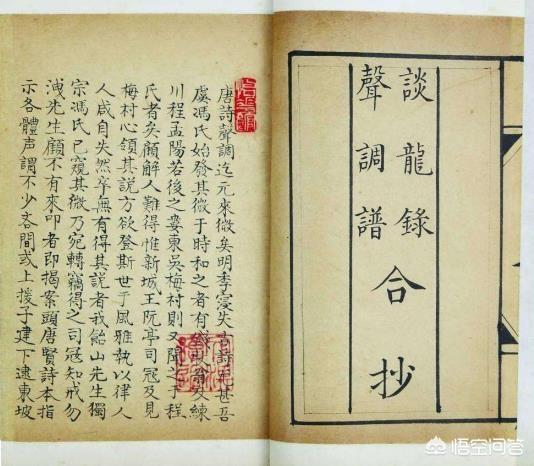 談龍錄
聲調譜
合抄
唐詩聲調迄元來微矣明季寖失古詩尤甚吾
虞馮氏始發其微于時和之者有錢牧翁及練
川程孟陽若後之婁東吳梅村則又聞之于程
氏者矣顧解人難得惟新城王阮亭司冠及見
梅村心領其說方欲登斯世于風雅執以律人
人咸自失然卒無有得其說者我飴山先生獨
宗馮氏已窺其微乃宛轉竊得之司冠知戒勿
洩先生顧不有來叩者即揭案頭唐賢詩本指
示各體声調不少吝間或上援子建下逮東坡
悟空问答